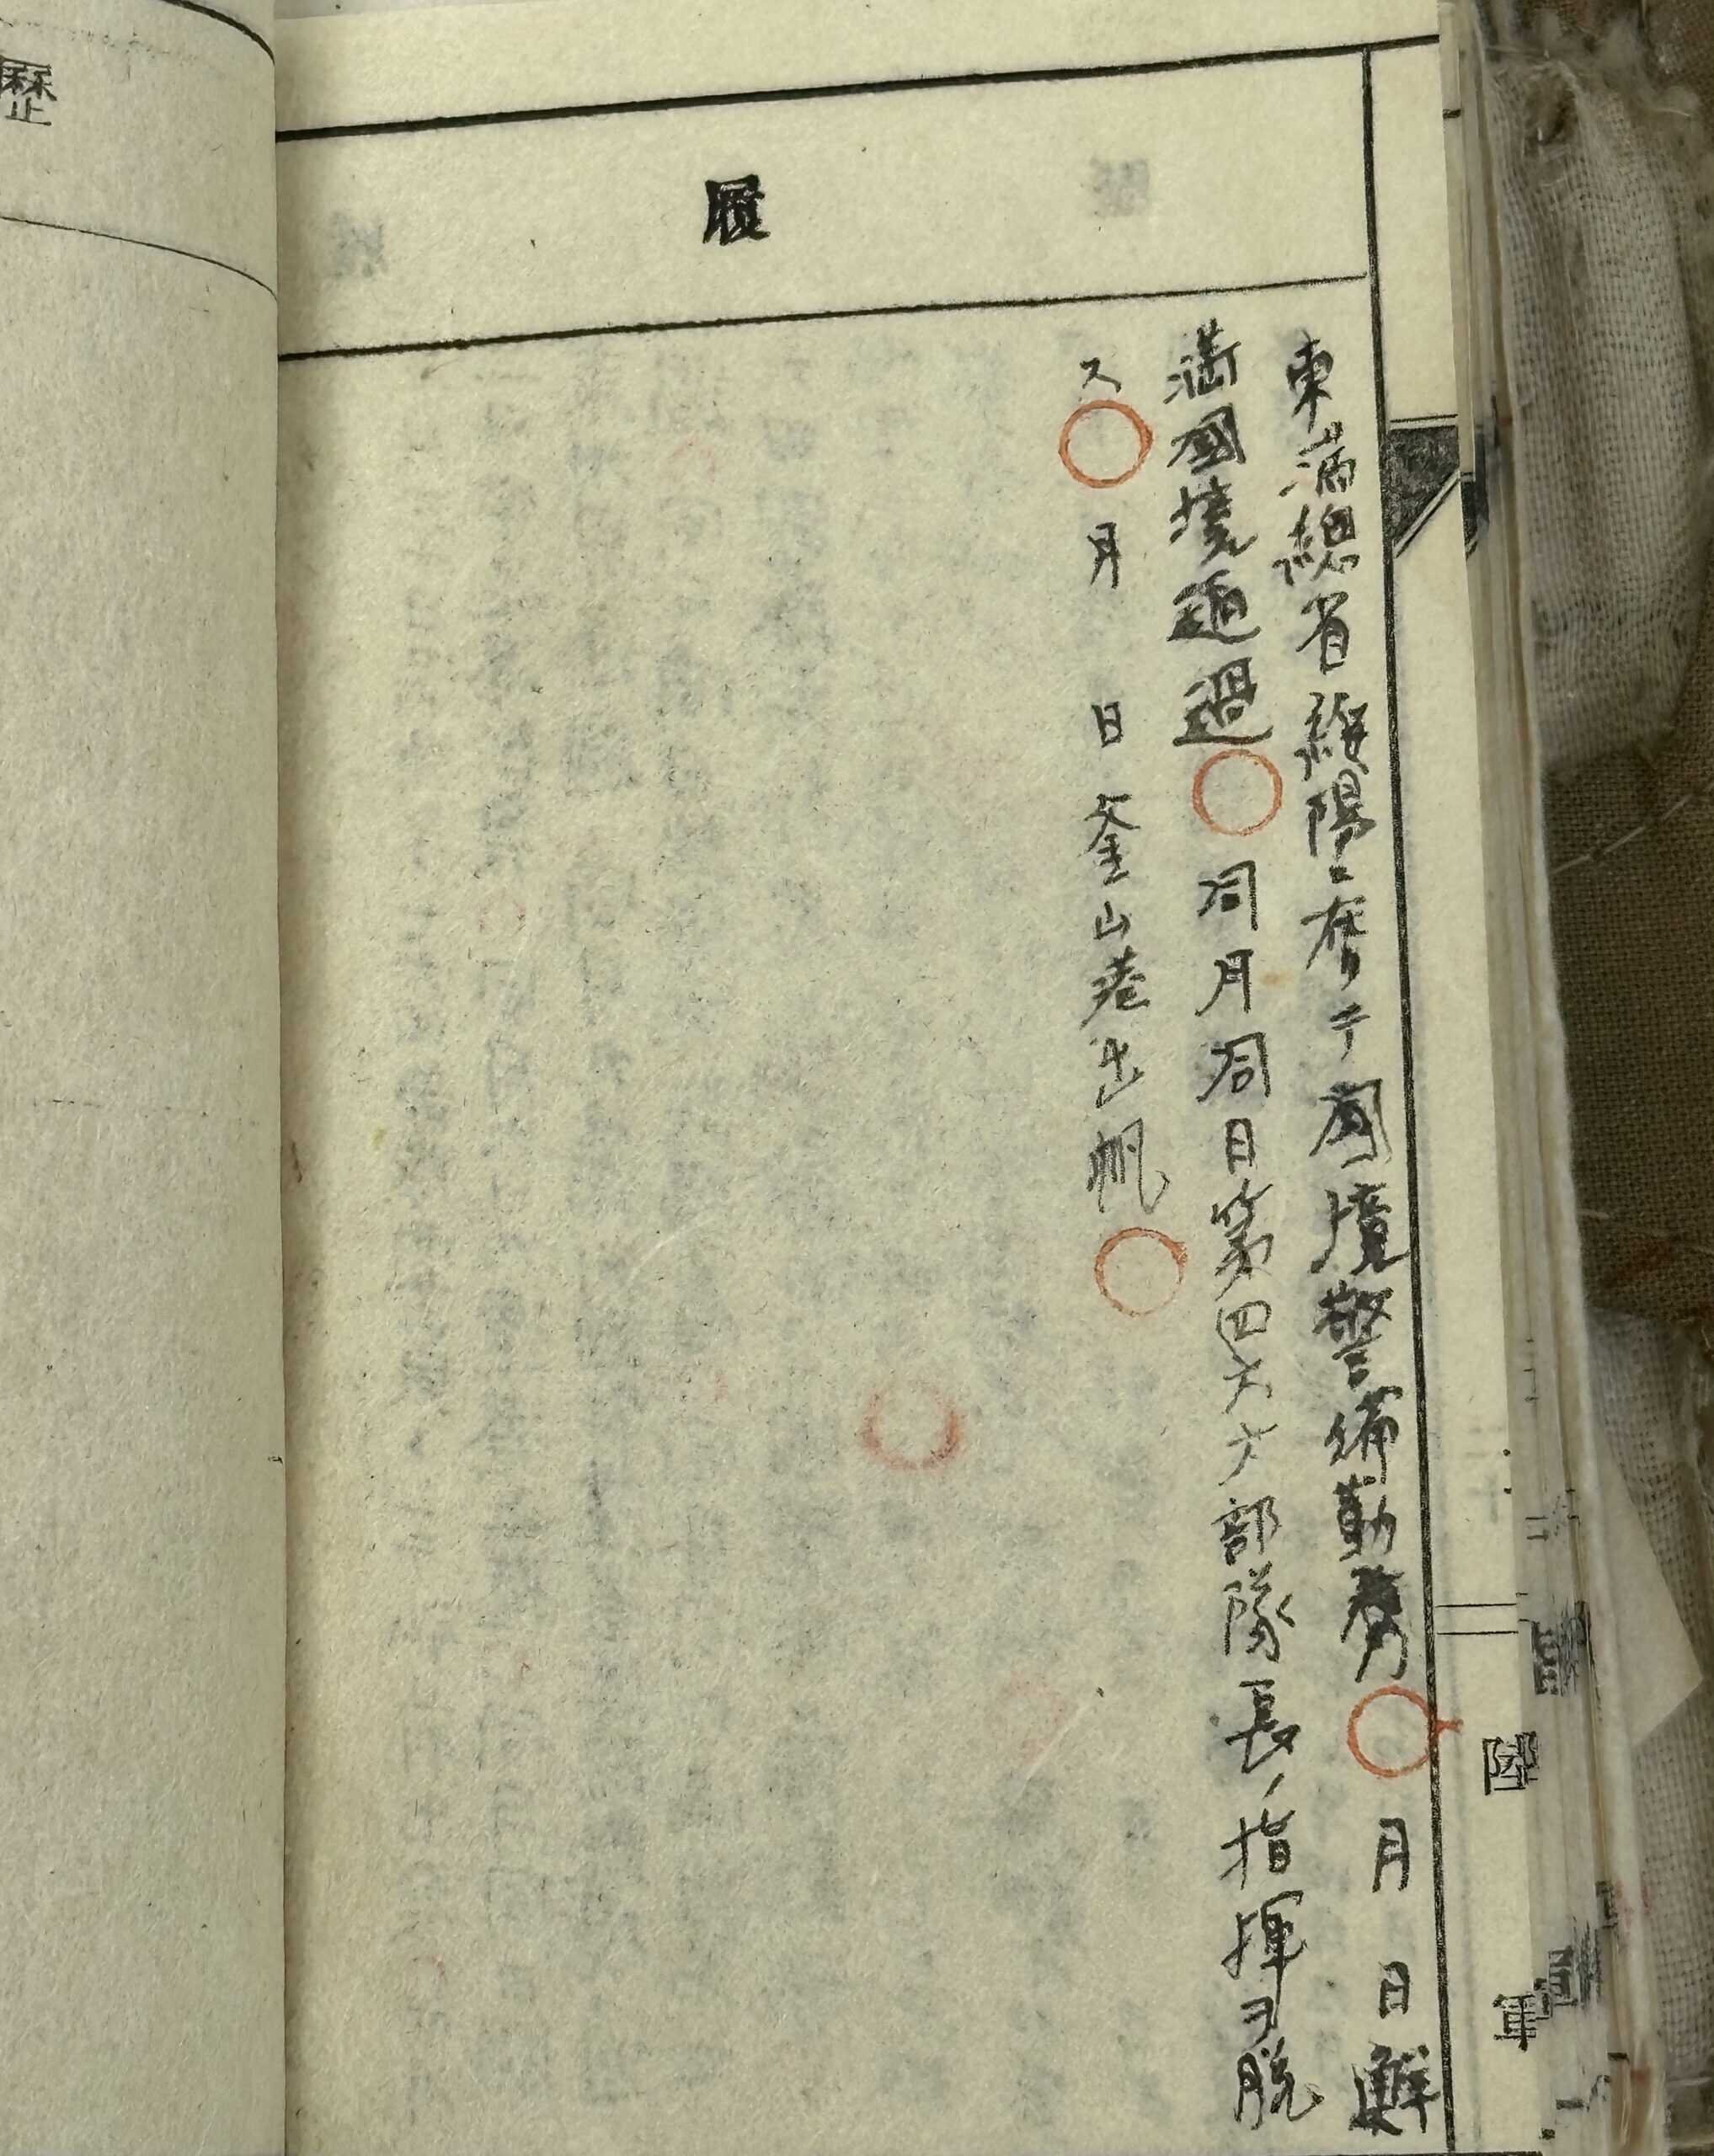 履
東満總省綏陽ニ於テ國境警備勤務〇 月 日鮮
満國境通過〇同月同日第四六六部隊長ノ指揮ヲ脱
ス〇 月 日釜山港出帆〇
陸軍
歷